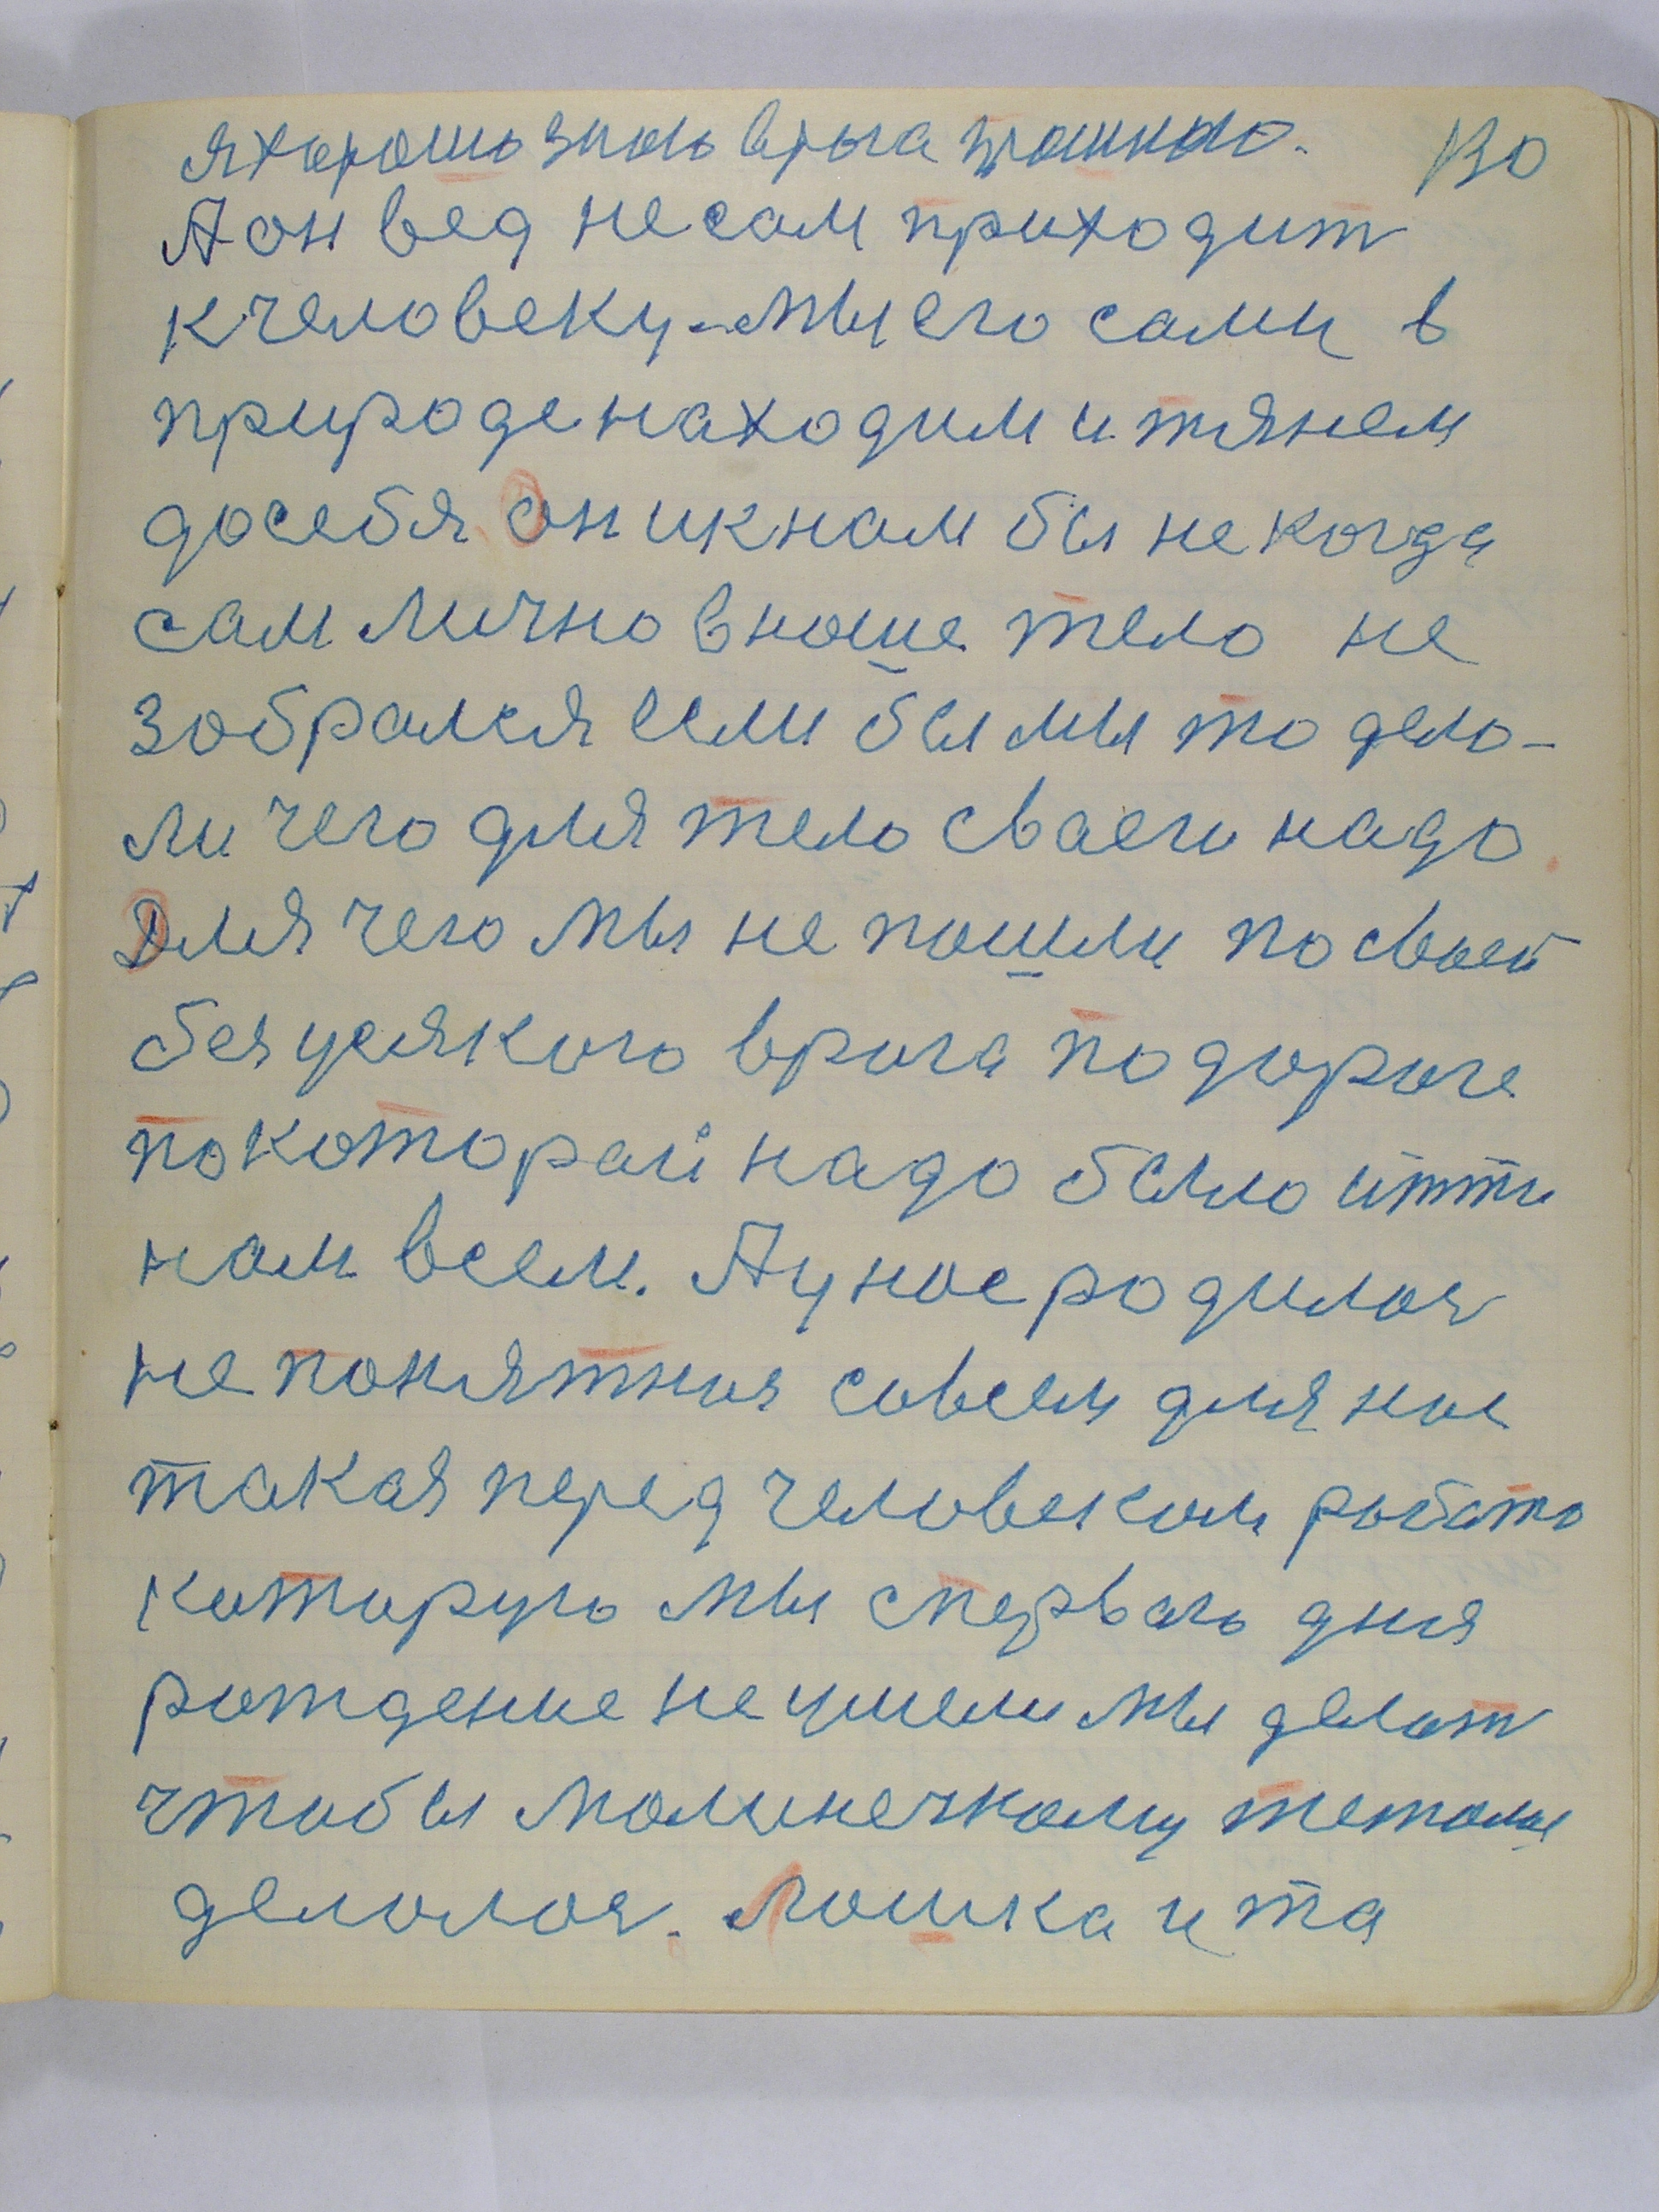 я хорошо знаю врага 130
А он вед не сам приходит
к человеку. мы его сами в
природе находим и тянем
до себя он и к нам бы не когда
сам лично в наше тело не
забрался если бы мы то дела-
ли чего для тело сваего надо
Для чего мы не пошли по своей
без усякого врага по дороге
по которай надо было итти
нам всем. А у нас родилася
не понятная совсем для нас
такая перед человеком работа
которую мы с первого дня
рождение не умели мы делат
чтобы малинечкому
делалося. Ложка и та